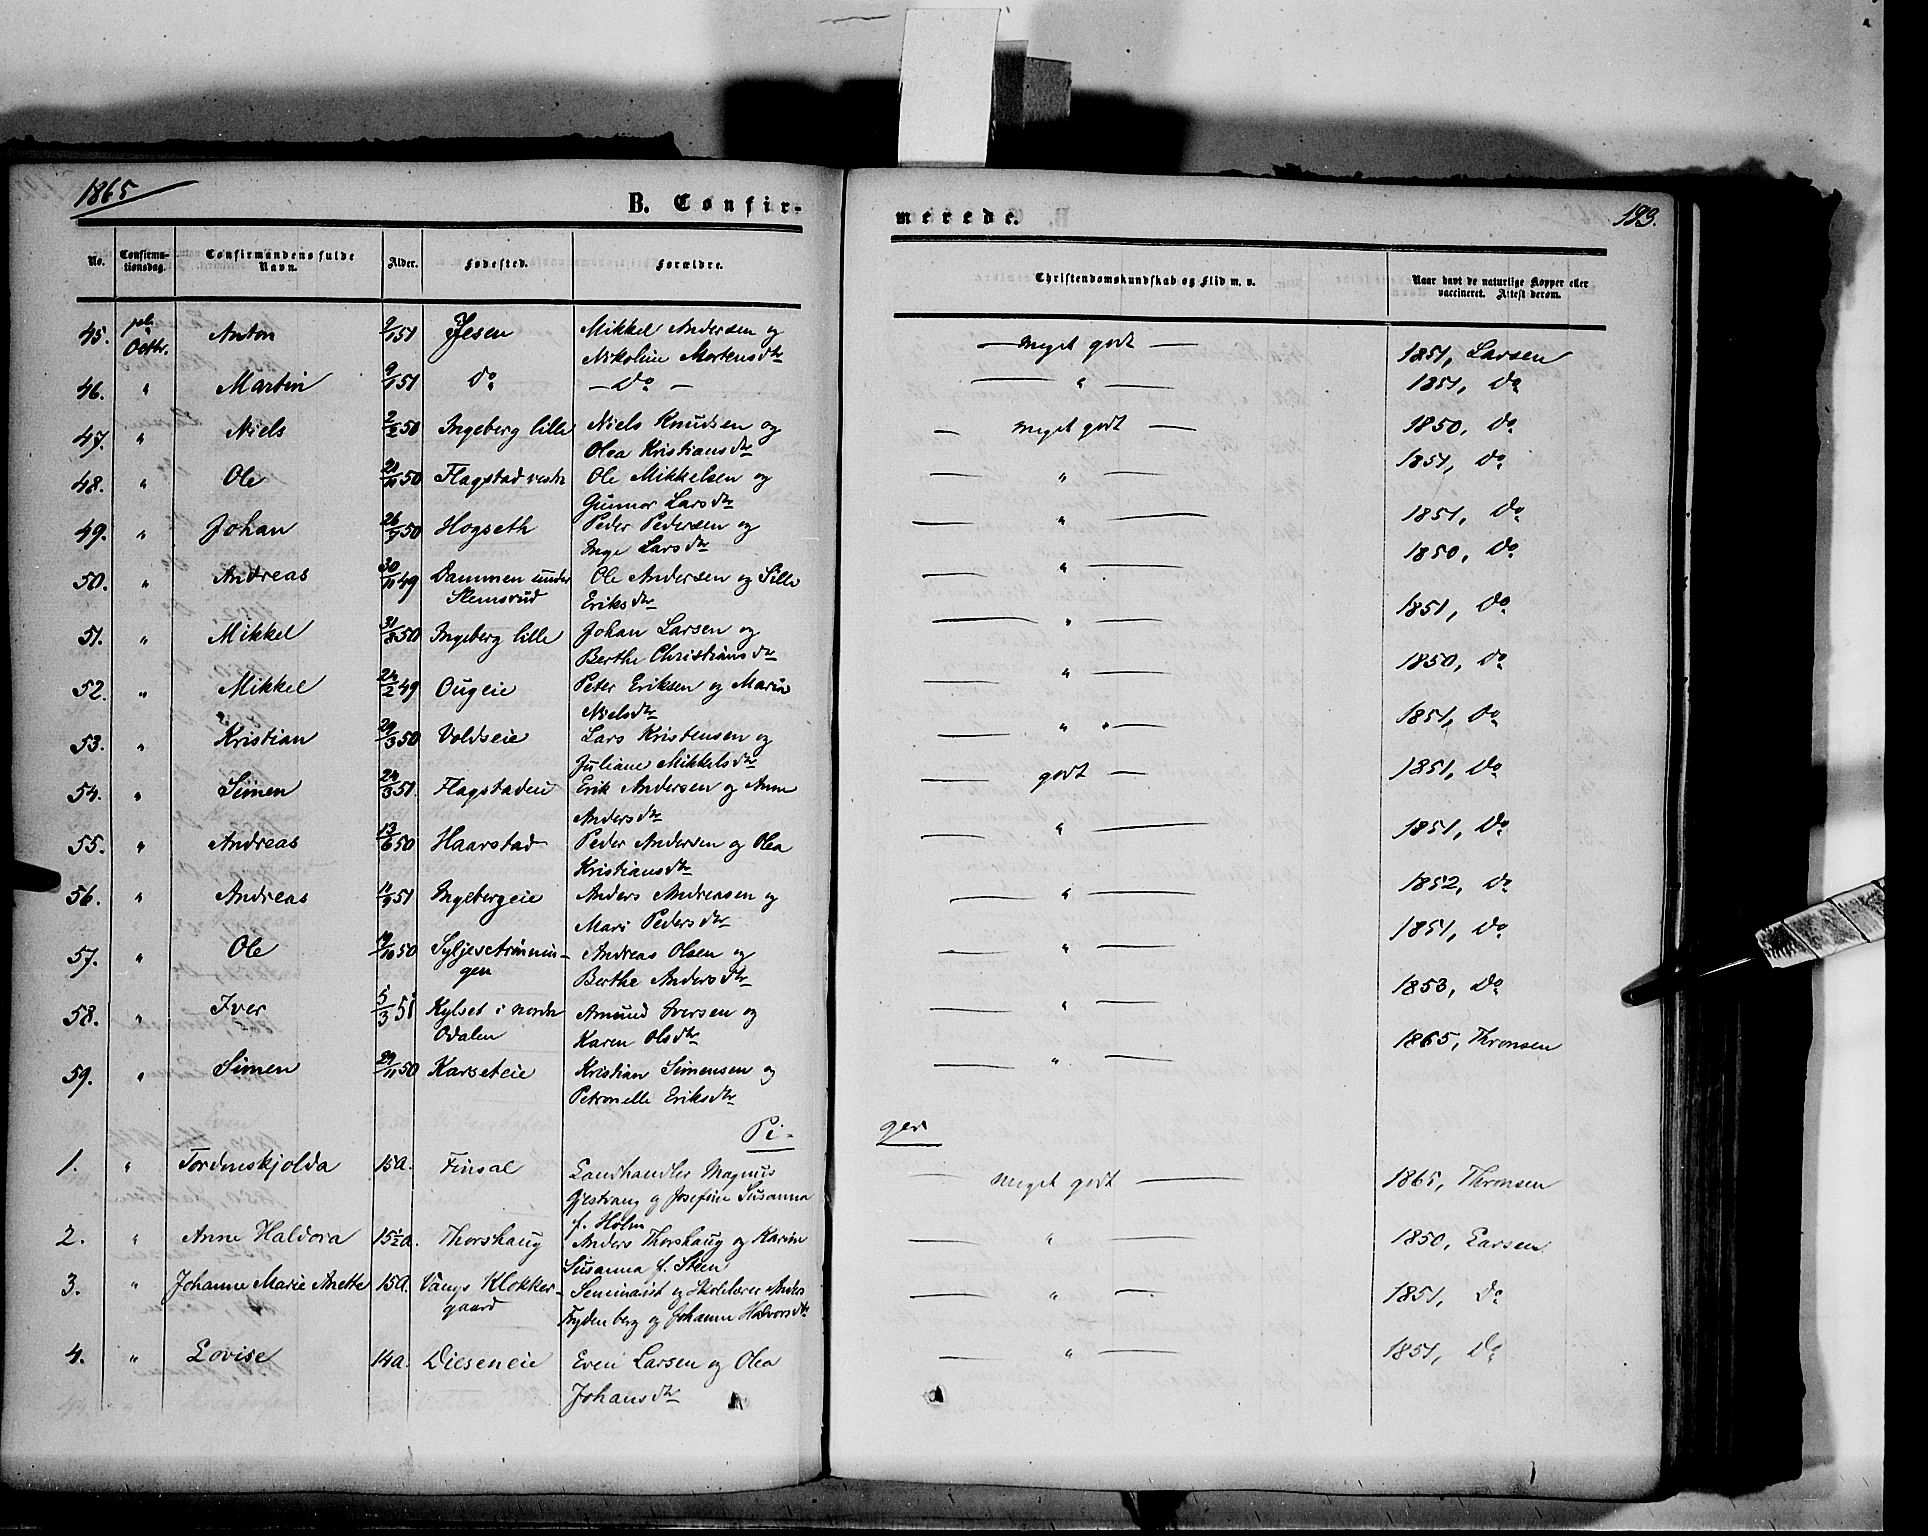 1865
B. Confir-
merede.
193.
No. Confirma-tionsdag. Confirmandens fulde Navn. Alder. Fødested. Forældre. Christendomskundskab og Flid m. v. Naar havt de naturlige Kopper eller vaccineret. Attest derom.
45. Octbr. Anton 9/1 51 Jesen Mikkel Andersen og — meget godt — 1851, Larsen
Nikoline Mortensdtr
46. " Martin 9/1 51 Do — Do — — " — 1851, Do
47. " Niels 2/2 50 Ingeberg lille Niels Knudsen og — meget godt — 1850, Do
Olea Kristiansdtr
48. " Ole 50 Flagstad vestre Ole Mikkelsen og — " — 1851, Do
Gunnor Larsdtr
49. " Johan 50 Hogseth Peder Pedersen og — " — 1851, Do
Inge Larsdtr
50. " Andreas 30/11 49 Dammen under Ole Andersen og Sille — " — 1850, Do
Stemsrud Eriksdtr
51. " Mikkel 50 Ingeberg lille Johan Larsen og — " — 1851, Do
Berthe Christiansdtr
52. " Mikkel 24/2 49 Ougeie Peter Eriksen og Maria — " — 1850, Do
Nielsdtr
53. " Kristian 29/3 50 Voldseie Lars Kristensen og — " " — 1851, Do
Juliane Mikkelsdtr
54. " Simen 24/3 51. Flagstadeie Erik Andersen og Anne — godt — 1851, Do
Andersdtr
55. " Andreas 50 Haarstad Peder Andersen og Olea — " — 1851, Do
Kristiansdtr
56. " Andreas 51 Ingebergeie Anders Andreasen og — " — 1852, Do
Mari Pedersdtr
57. " Ole 19/10 50 Syljesetrønnin- Andreas Olsen og — " — 1851, Do
gen Berthe Andersdtr
58. " Iver 5/3 51 Kylset i nordre Amund Iversen og — " — 1853, Do
Odalen Karen Olsdtr
59. " Simen 29/11 50 Karseteie Kristian Simensen og — " — 1865, Thronsen
Petronelle Eriksdtr
Pi- ger
1. " Tordenskjolda 15 A. Finsal Landhandler Magnus — meget godt — 1865, Thronsen
Gjestvang og Josefine Susanna
f. Holm
2. " Anne Haldora 15½ a. Thorshaug Anders Thorshaug og Karen — " — 1850, Larsen
Susanna f. Steen
3. " Johanne Marie Anette 15 A. Vangs Klokker- Seminarist og Skolelærer Anders — " — 1851, Do
gaard Frydenberg og Johanne Halvorsdtr
4. " Lovise 14 a. Dieseneie Even Larsen og Olea — " — 1851, Do
Johansdtr